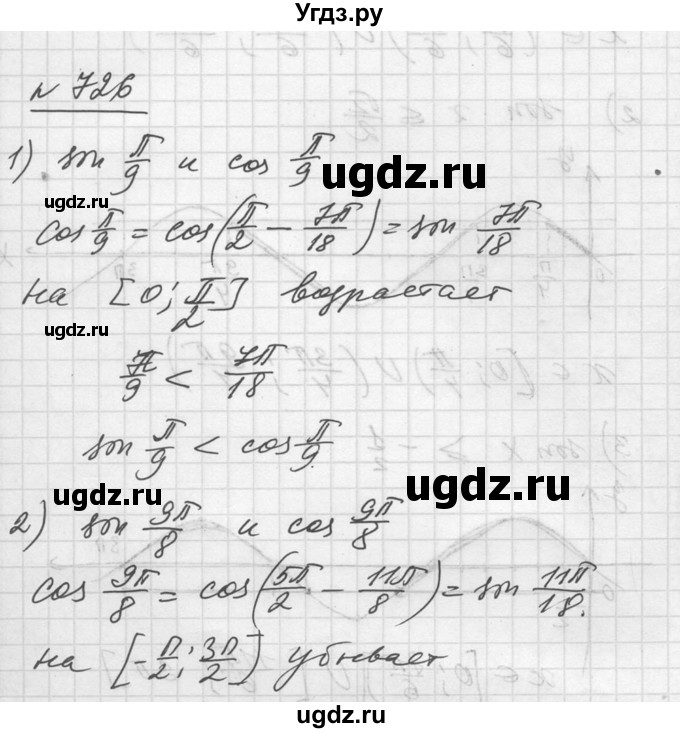 Угдз.ру
№ 726
1) sin π/9 и cos π/9
ugdz.ru
ugdz.ru
cos π/9 = cos(π/2 − 7π/18) = sin 7π/18
на [0; π/2] возрастает
ugdz.ru
π/9 < 7π/18
sin π/9 < cos π/9
ugdz.ru
ugdz.ru
2) sin 9π/8 и cos 9π/8
cos 9π/8 = cos(5π/2 − 11π/8) = sin 11π/18.
на [-π/2; 3π/2] убывает
ugdz.ru
ugdz.ru
ugdz.ru